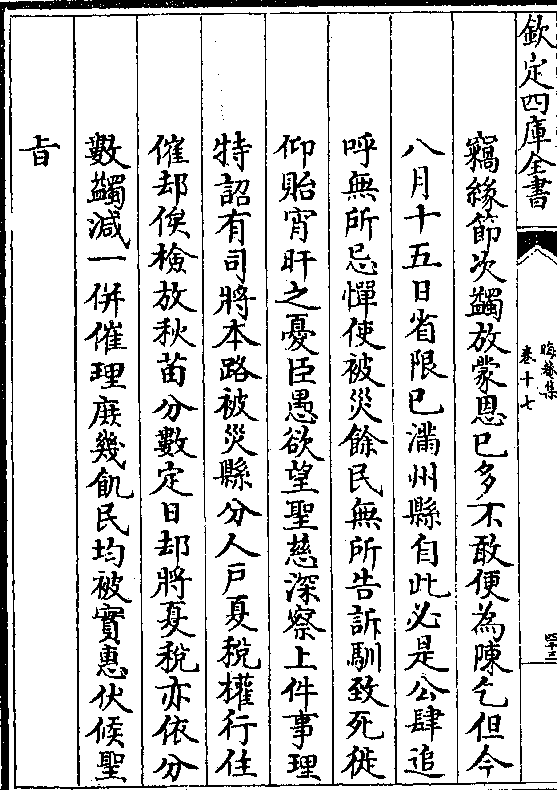 欽定四庫全書
晦菴集
卷十七
四十三
竊緣節次蠲放蒙恩已多不敢便為陳乞但今
八月十五日省限已滿州縣自此必是公肆追
呼無所忌憚使被災餘民無所告訴馴致死徙
仰貽宵旰之憂臣愚欲望聖慈深察上件事理
特詔有司將本路被災縣分人戶夏稅權行住
催却俟檢放秋苗分數定日却將夏稅亦依分
數蠲減一併催理庶幾飢民均被實惠伏候聖
旨